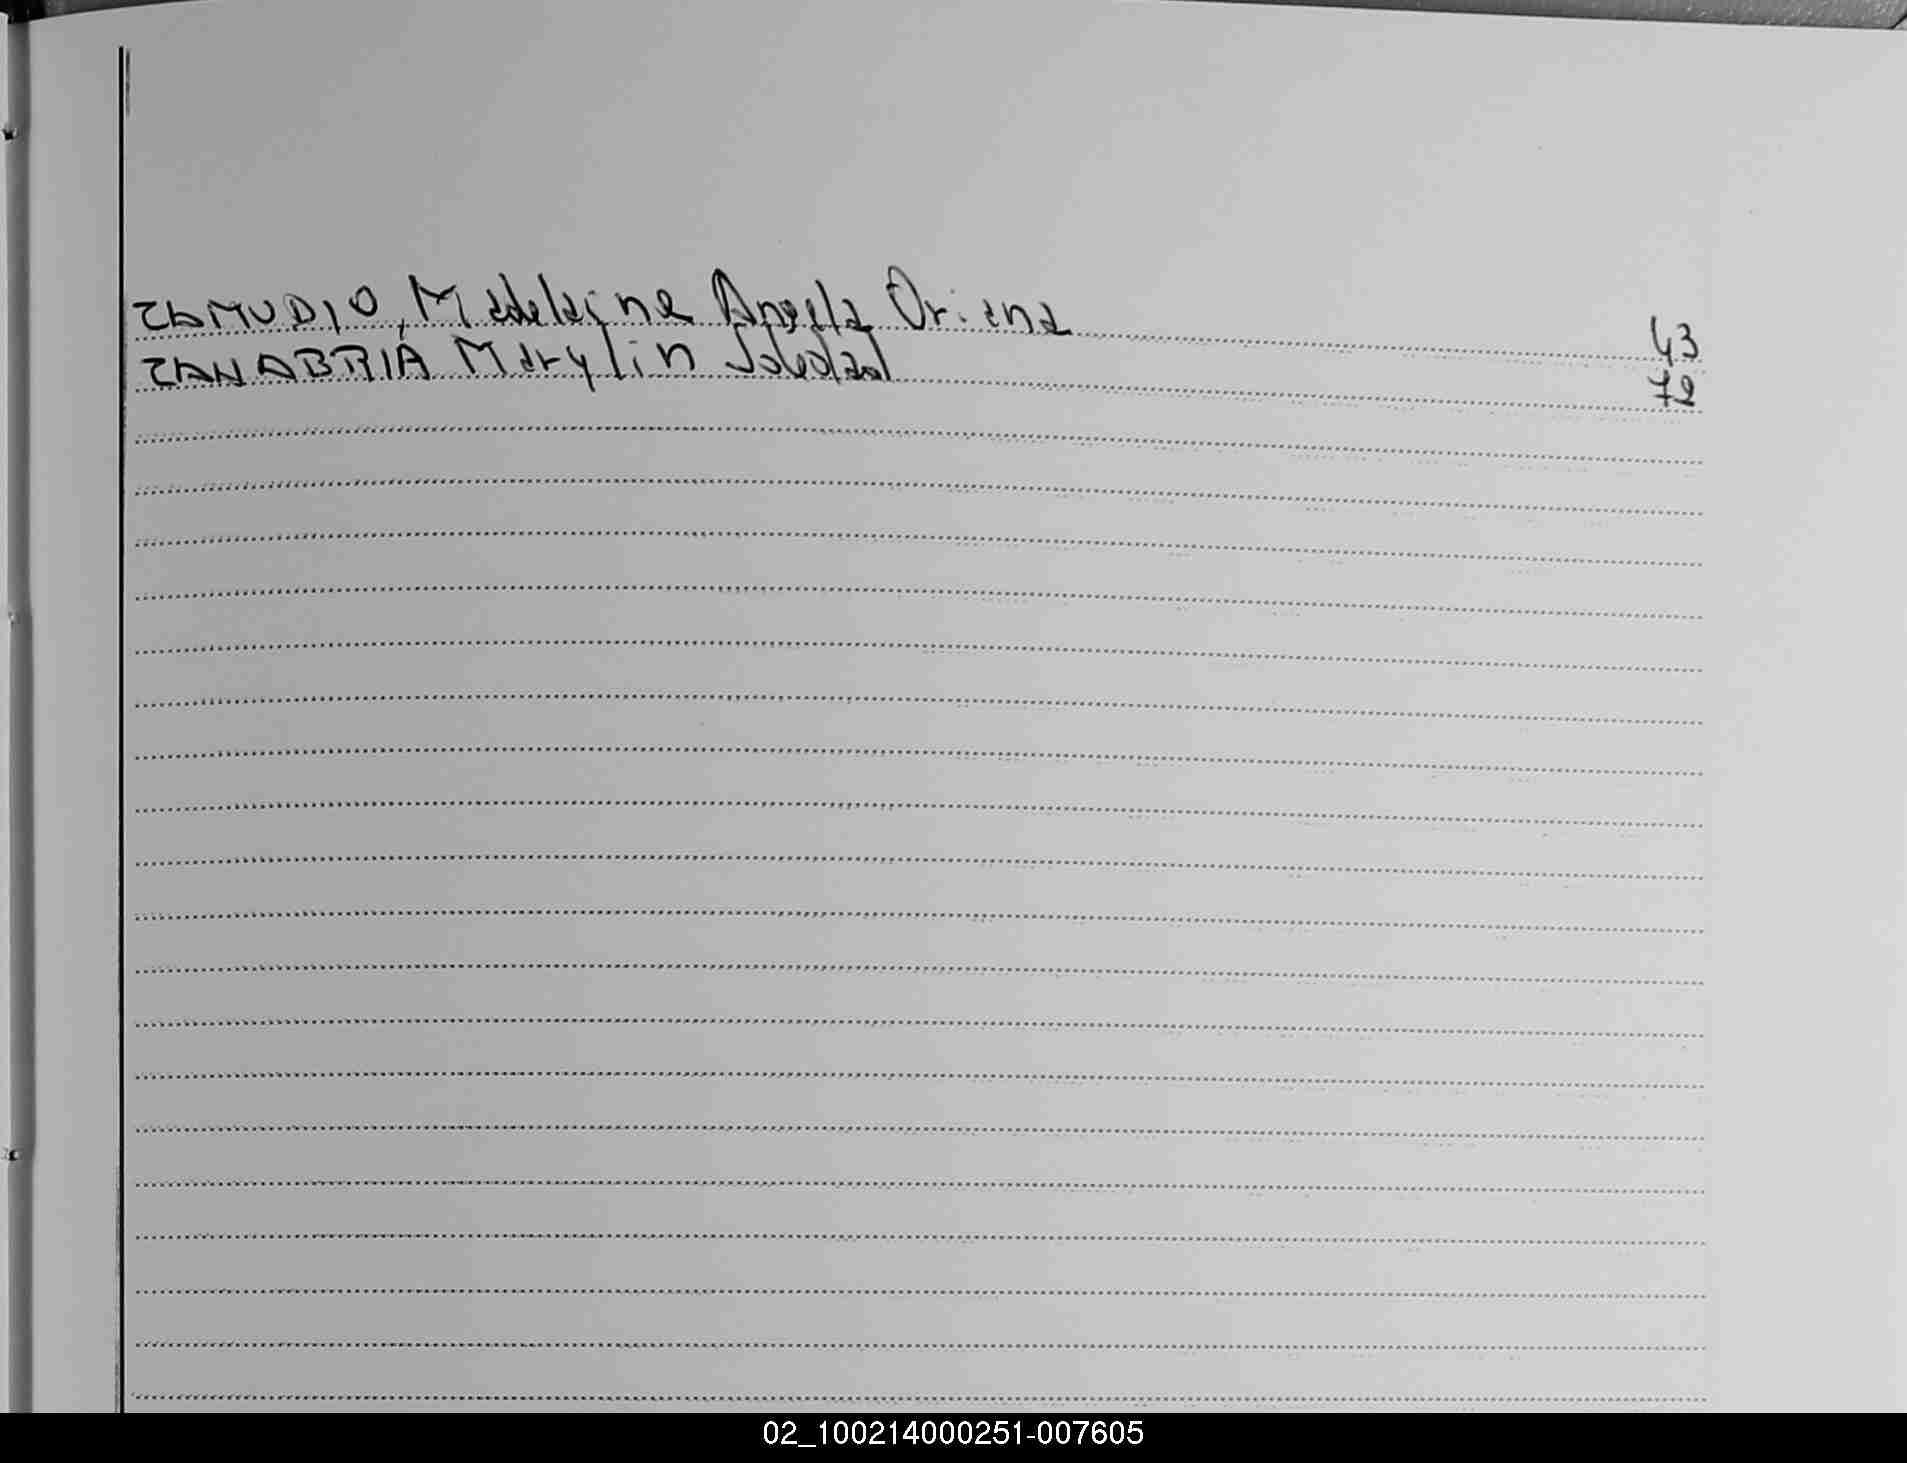 ZAMUDIO, Madeleine Angela Oriana 43
ZANABRIA Marylin Soledad 72
02_100214000251-007605